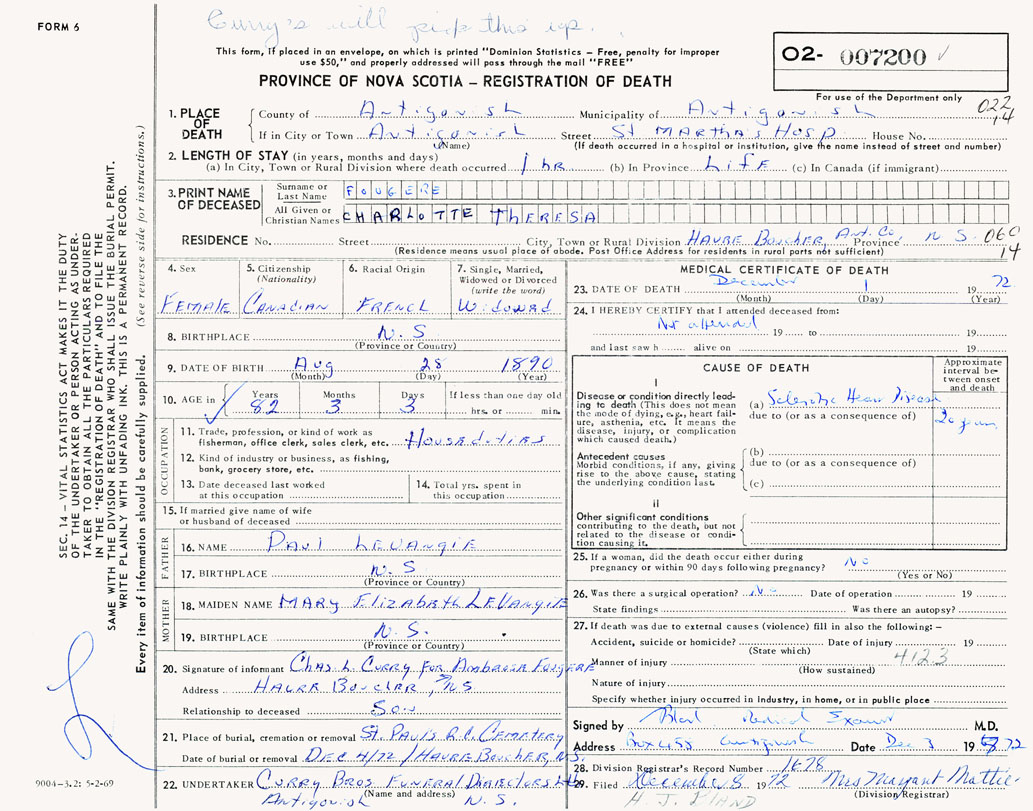 Curry's will pick this up.
FORM 6
This form, if placed in an envelope, on which is printed "Dominion Statistics – Free, penalty for improper
use $50," and properly addressed will pass through the mail "FREE"
PROVINCE OF NOVA SCOTIA – REGISTRATION OF DEATH
02- 007200 ✓
For use of the Department only
022
14
1. PLACE OF DEATH
County of Antigonish Municipality of Antigonish
If in City or Town Antigonish Street St Martha's Hosp House No.
(Name) (If death occurred in a hospital or institution, give the name instead of street and number)
2. LENGTH OF STAY (in years, months and days)
(a) In City, Town or Rural Division where death occurred 1 hr (b) In Province Life (c) In Canada (if immigrant)
3. PRINT NAME OF DECEASED
Surname or Last Name FOUGERE
All Given or Christian Names CHARLOTTE THERESA
RESIDENCE No. Street City, Town or Rural Division Havre Boucher, Ant. Co. Province N S. 060
14
(Residence means usual place of abode. Post Office Address for residents in rural parts not sufficient)
4. Sex
Female
5. Citizenship
(Nationality)
Canadian
6. Racial Origin
French
7. Single, Married,
Widowed or Divorced
(write the word)
Widowed
8. BIRTHPLACE N. S
(Province or Country)
9. DATE OF BIRTH Aug 28 1890
(Month) (Day) (Year)
10. AGE in
Years Months Days If less than one day old
82 3 3 hrs. or min.
OCCUPATION
11. Trade, profession or kind of work as
fisherman, office clerk, sales clerk, etc. Houseduties
12. Kind of industry or business, as fishing,
bank, grocery store, etc.
13. Date deceased last worked
at this occupation
14. Total yrs. spent in
this occupation
15. If married give name of wife
or husband of deceased
FATHER
16. NAME Paul LeVangie
17. BIRTHPLACE N. S
(Province or Country)
MOTHER
18. MAIDEN NAME Mary Elizabeth LeVangie
19. BIRTHPLACE N. S.
(Province or Country)
20. Signature of informant Chas L Curry for Ambrose Fougere
Address Havre Boucher, N.S.
Relationship to deceased Son
21. Place of burial, cremation or removal St. Pauls R.C. Cemetery
Date of burial or removal Dec 4/72 / Havre Boucher, N.S.
22. UNDERTAKER Curry Bros Funeral Directors Ltd
(Name and address)
Antigonish N. S.
MEDICAL CERTIFICATE OF DEATH
23. DATE OF DEATH December 1 19 72
(Month) (Day) (Year)
24. I HEREBY CERTIFY that I attended deceased from:
Not attended 19 to 19
and last saw h alive on 19
CAUSE OF DEATH
Approximate
interval be-
tween onset
and death
I
Disease or condition directly lead-
ing to death (This does not
mean the mode of dying, e.g., heart fail-
ure, asthenia, etc. It means the
disease, injury, or complication
which caused death.)
(a) Sclerotic Heart Disease
due to (or as a consequence of)
20 years
Antecedent causes
Morbid conditions, if any, giving
rise to the above cause, stating
the underlying condition last.
(b)
due to (or as a consequence of)
(c)
II
Other significant conditions
contributing to the death, but not
related to the disease or condi-
tion causing it.
25. If a woman, did the death occur either during
pregnancy or within 90 days following pregnancy? No
(Yes or No)
26. Was there a surgical operation? No Date of operation 19
State findings Was there an autopsy?
27. If death was due to external causes (violence) fill in also the following: –
Accident, suicide or homicide? Date of injury 19
(State which)
4123
Manner of injury
(How sustained)
Nature of injury
Specify whether injury occurred in industry, in home, or in public place
Signed by Medical Examiner M.D.
Address Box 455 Antigonish Date Dec 3 19 72
28. Division Registrar's Record Number 1678
29. Filed December 8 1972 Mrs Margaret Mattie
(Division Registrar)
SEC. 14 – VITAL STATISTICS ACT MAKES IT THE DUTY
OF THE UNDERTAKER OR PERSON ACTING AS UNDER-
TAKER TO OBTAIN ALL THE PARTICULARS REQUIRED
IN THE "REGISTRATION OF DEATH" AND TO FILE THE
SAME WITH THE DIVISION REGISTRAR WHO SHALL ISSUE THE BURIAL PERMIT.
WRITE PLAINLY WITH UNFADING INK. THIS IS A PERMANENT RECORD.
Every item of information should be carefully supplied. (See reverse side for instructions.)
9004-3.2: 5-2-69